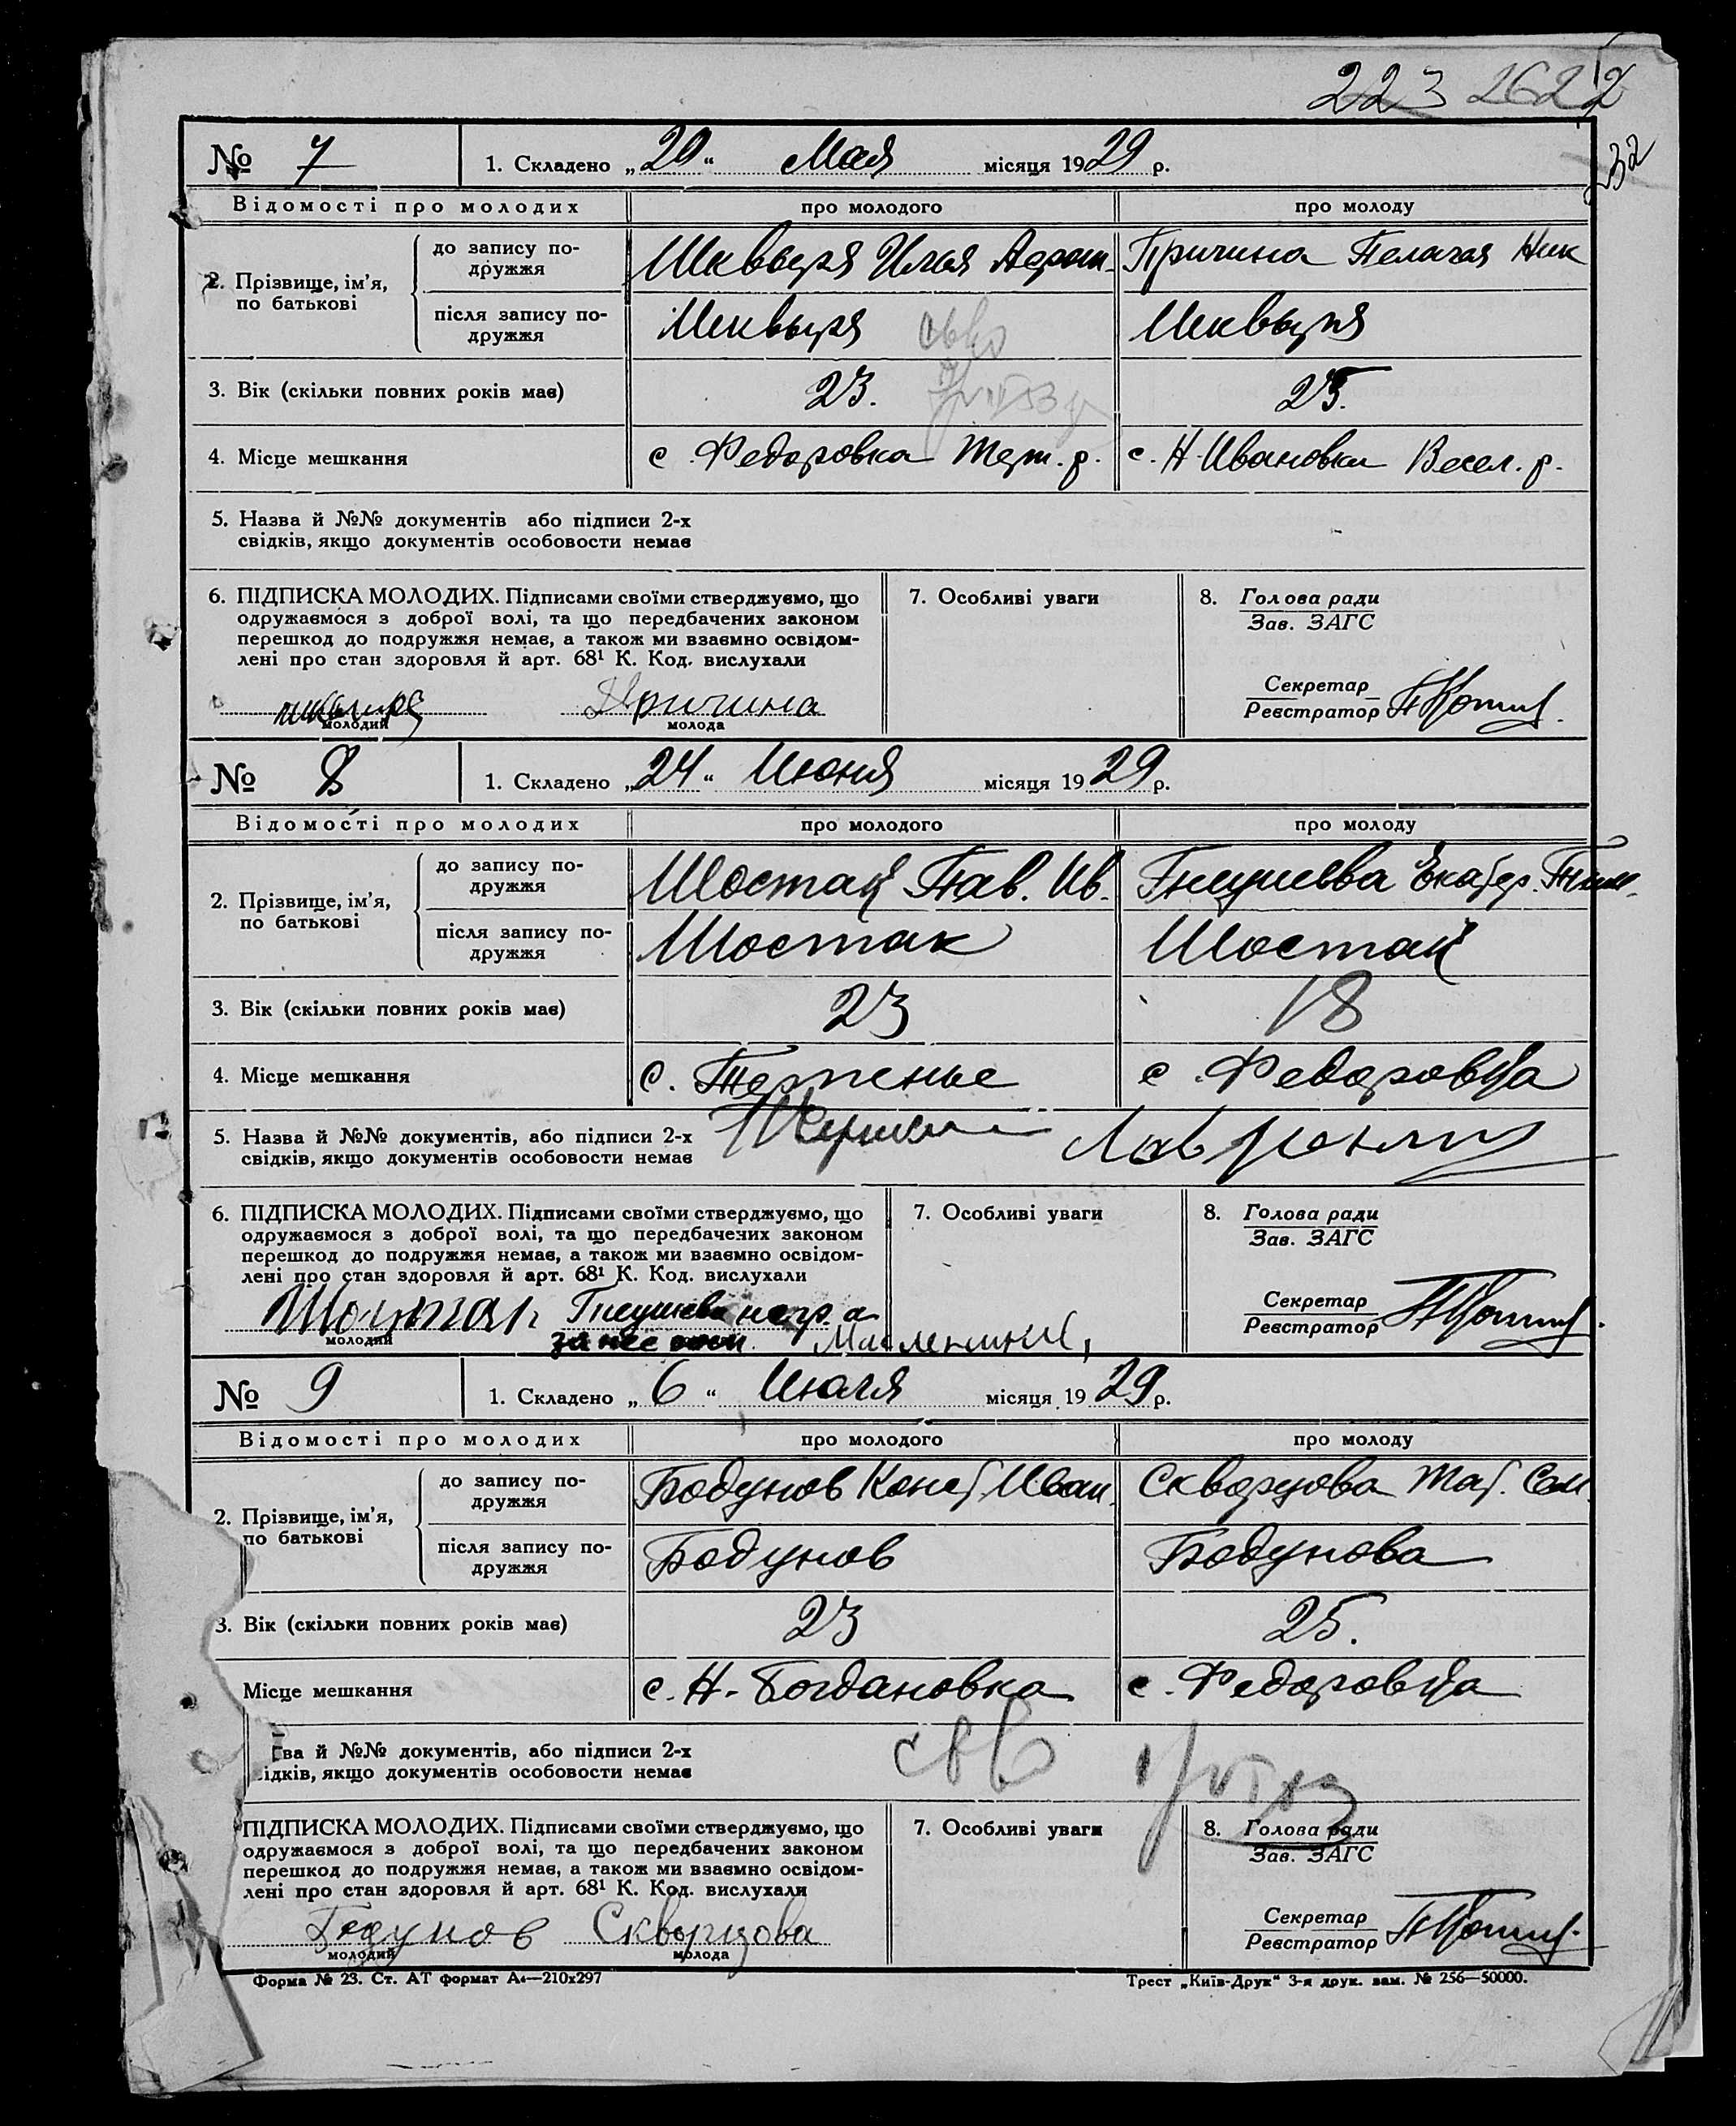 223 262 2
232
№ 7 1. Складено „20“ Мая місяця 1929 р.
Відомості про молодих про молодого про молоду
2. Прізвище, ім’я, по батькові
до запису подружжя Шквыря Илья Причина Пелагея Ник
після запису подружжя Шквыря Шквыря
3. Вік (скільки повних років має) 23. 25.
4. Місце мешкання с. Федоровка Терп. р. с. Н-Ивановка Весел. р.
5. Назва й №№ документів або підписи 2-х
свідків, якщо документів особовости немає
6. ПІДПИСКА МОЛОДИХ. Підписами своїми стверджуємо, що
одружаємося з доброї волі, та що передбачених законом
перешкод до подружжя немає, а також ми взаємно освідом-
лені про стан здоровля й арт. 68¹ К. Код. вислухали
7. Особливі уваги
8. Голова ради
Зав. ЗАГС
Секретар
Реєстратор
Причина
молодий молода
№ 8 1. Складено „24“ Июня місяця 1929 р.
Відомості про молодих про молодого про молоду
2. Прізвище, ім’я, по батькові
до запису подружжя Шостак Пав. Ив. Гнеушева Екатер. Тим.
після запису подружжя Шостак Шостак
3. Вік (скільки повних років має) 23 18
4. Місце мешкання с. Терпенье с. Федоровка
5. Назва й №№ документів, або підписи 2-х
свідків, якщо документів особовости немає
6. ПІДПИСКА МОЛОДИХ. Підписами своїми стверджуємо, що
одружаємося з доброї волі, та що передбачених законом
перешкод до подружжя немає, а також ми взаємно освідом-
лені про стан здоровля й арт. 68¹ К. Код. вислухали
7. Особливі уваги
8. Голова ради
Зав. ЗАГС
Секретар
Реєстратор
Шостак Гнеушева негр. а
молодий за нее
№ 9 1. Складено „6“ Июля місяця 1929 р.
Відомості про молодих про молодого про молоду
2. Прізвище, ім’я, по батькові
до запису подружжя Бодунов Конст. Иван. Скворцова Тат. Сем.
після запису подружжя Бодунов Бодунова
3. Вік (скільки повних років має) 23 25.
Місце мешкання с. Н-Богдановка с. Федоровка
ва й №№ документів, або підписи 2-х
ідків, якщо документів особовости немає
ПІДПИСКА МОЛОДИХ. Підписами своїми стверджуємо, що
одружаємося з доброї волі, та що передбачених законом
перешкод до подружжя немає, а також ми взаємно освідом-
лені про стан здоровля й арт. 68¹ К. Код. вислухали
7. Особливі уваги
8. Голова ради
Зав. ЗАГС
Секретар
Реєстратор
Бодунов Скворцова
молодий молода
Форма № 23. Ст. АТ формат А₄—210x297 Трест „Київ-Друк“ 3-я друк. зам. № 256—50000.